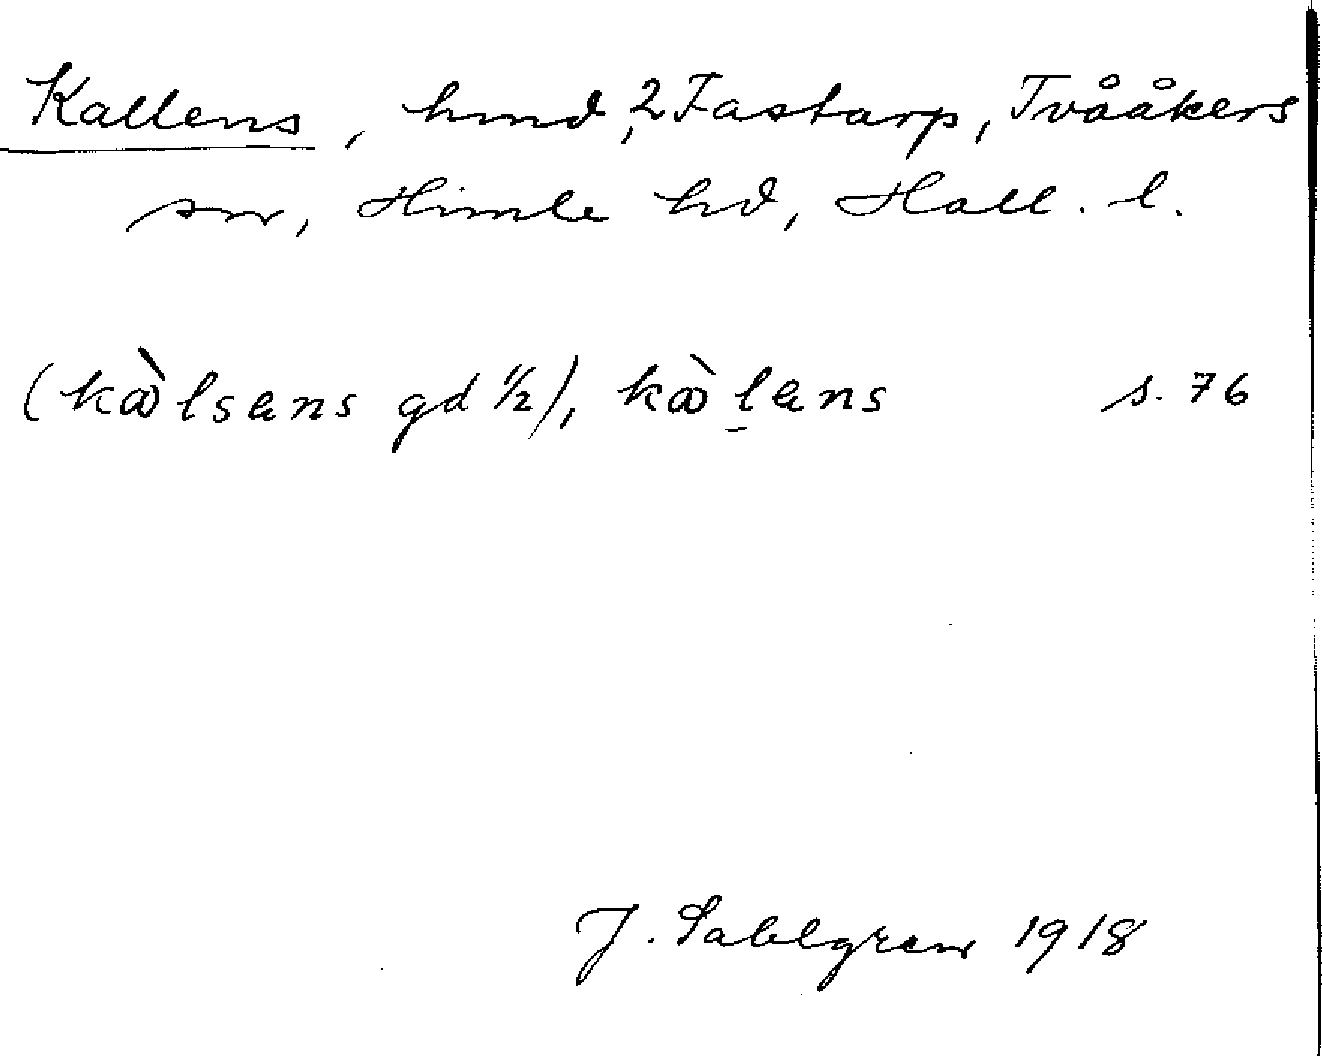 Kallens, hmd, 2 Fastarp, Tvååkers
sn, Himle hd, Hall. l.
(kàlsens gd 1/2), kàlens s. 76
J. Sahlgren 1918